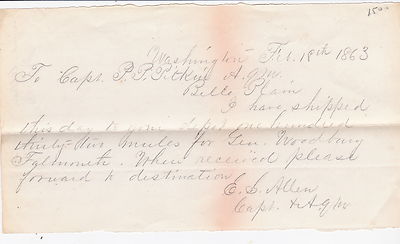 1500
Washington Feb. 18th 1863
To Capt. P.P. Pitkin A.Q.M.
Belle Plain
I have shipped
this day to your Depot one hundred
thirty-six mules for Gen. Woodbury
Falmouth. When received please
forward to destination
E. S. Allen
Capt. & A.Q.M